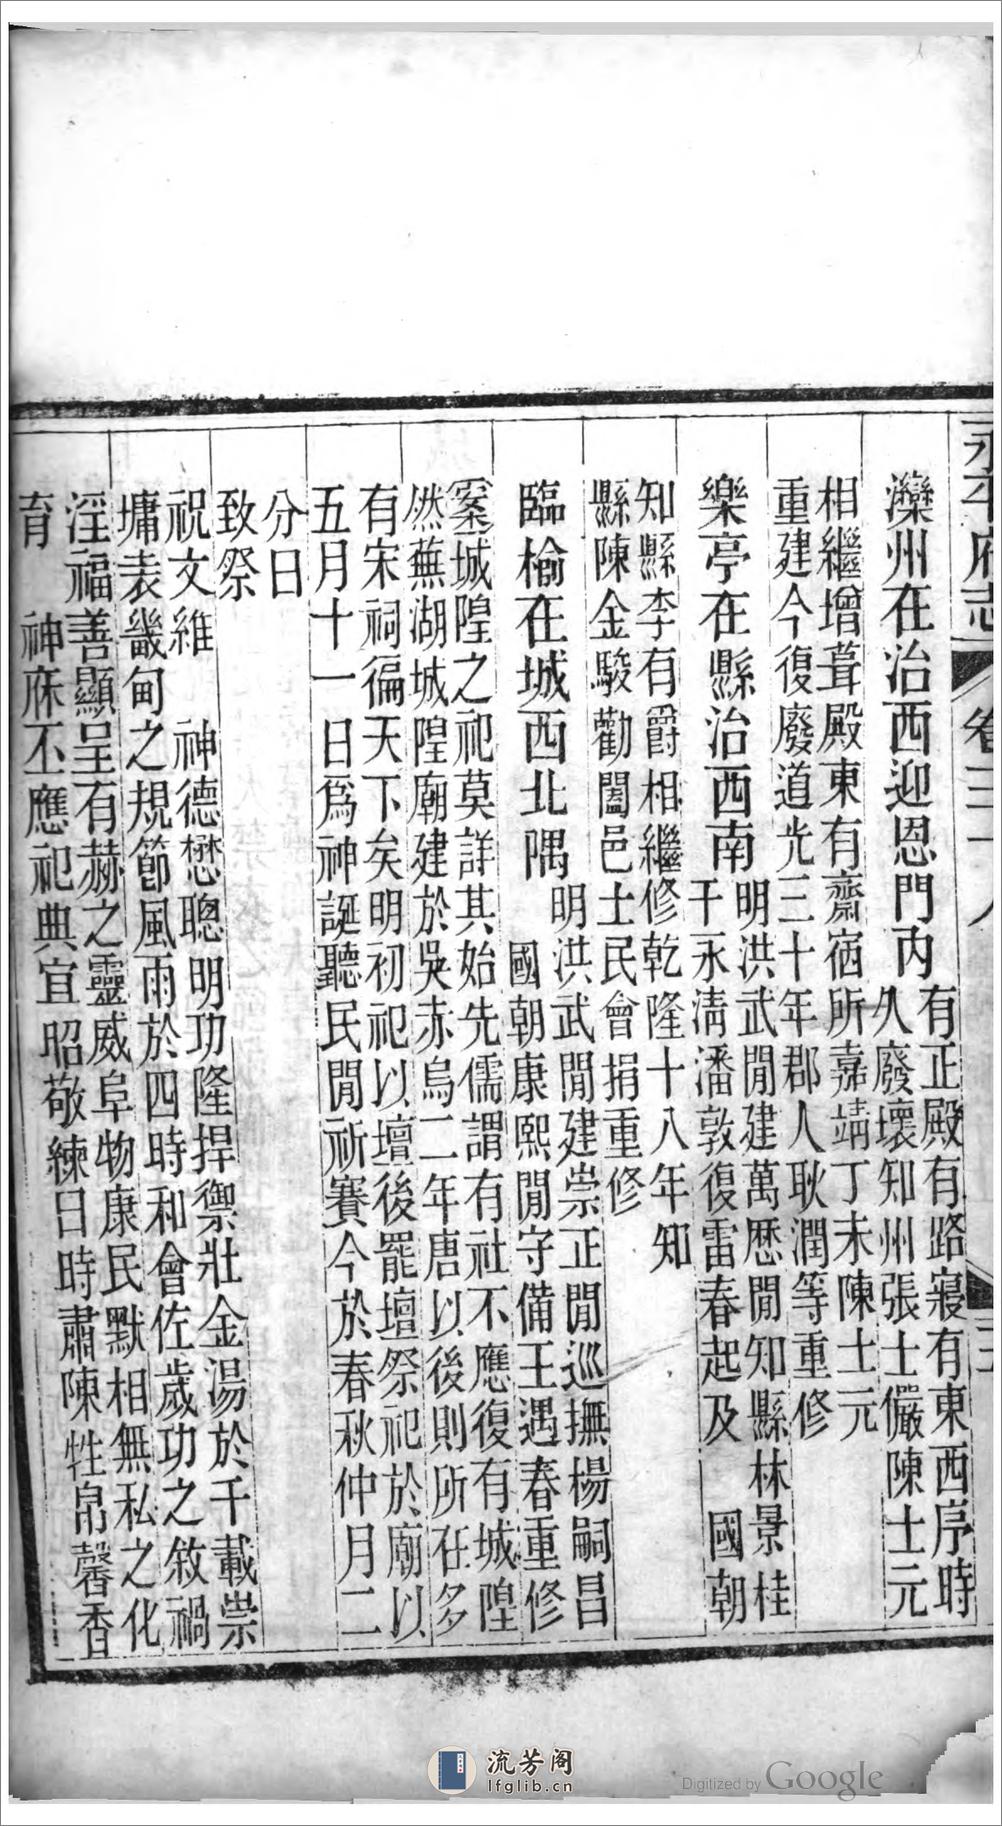 永平府志 卷三十八
灤州在治西迎恩門內 有正殿有路寢有東西序時
久廢壞知州張士儼陳士元
相繼增葺殿東有齋宿所嘉靖丁未陳士元
重建今復廢道光三十年郡人耿潤等重修
樂亭在縣治西南 明洪武閒建萬厯閒知縣林景桂
于永清潘敦復雷春起及 國朝
知縣李有爵相繼修乾隆十八年知
縣陳金駿勸闔邑士民會捐重修
臨榆在城西北隅 明洪武閒建崇正閒巡撫楊嗣昌
國朝康熙閒守備王遇春重修
案城隍之祀莫詳其始先儒謂有社不應復有城隍
然蕪湖城隍廟建於吳赤烏二年唐以後則所在多
有宋祠徧天下矣明初祀以壇後罷壇祭祀於廟以
五月十一日爲神誕聽民閒祈賽今於春秋仲月二
分日
致祭
祝文維 神德懋聰明功隆捍禦壯金湯於千載崇
墉表畿甸之規節風雨於四時和會佐歲功之敘禍
淫福善顯呈有赫之靈威阜物康民默相無私之化
育 神庥丕應祀典宜昭敬練日時肅陳牲帛馨香
流芳阁
lfglib.cn
Digitized by Google